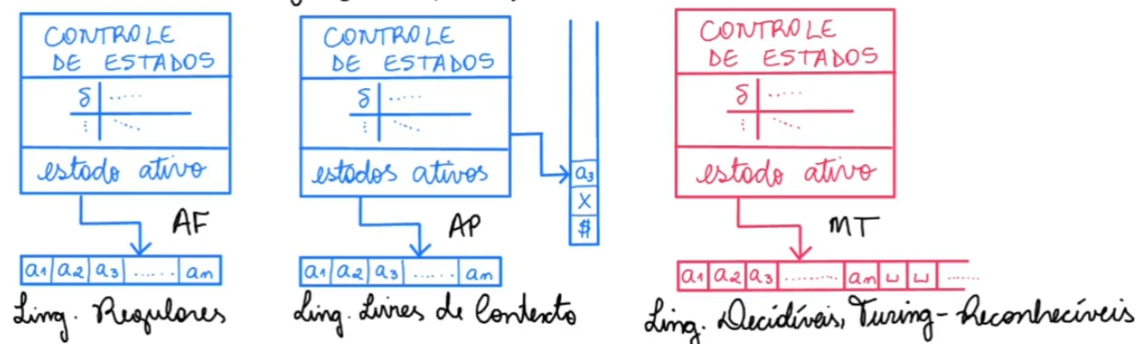 CONTROLE
DE ESTADOS
δ .....
estado ativo
AF
a1 a2 a3 ...... an
Ling. Regulares
CONTROLE
DE ESTADOS
δ .....
estados ativos
a3
X
$
AP
a1 a2 a3 ...... an
Ling. Livres de Contexto
CONTROLE
DE ESTADOS
δ .....
estado ativo
MT
a1 a2 a3 ......... an ⊔ ⊔ ......
Ling. Decidíveis, Turing-Reconhecíveis